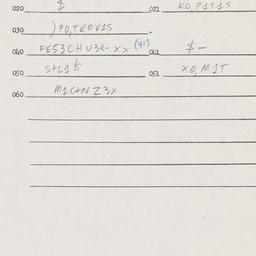 020 $ 021 KO,P1T1S
030 )PO,TKOV1S
040 FE53CHU3R-XX (413 041 $-
050 S+L15 051 XO,M1T
060 M1C+NZ3X